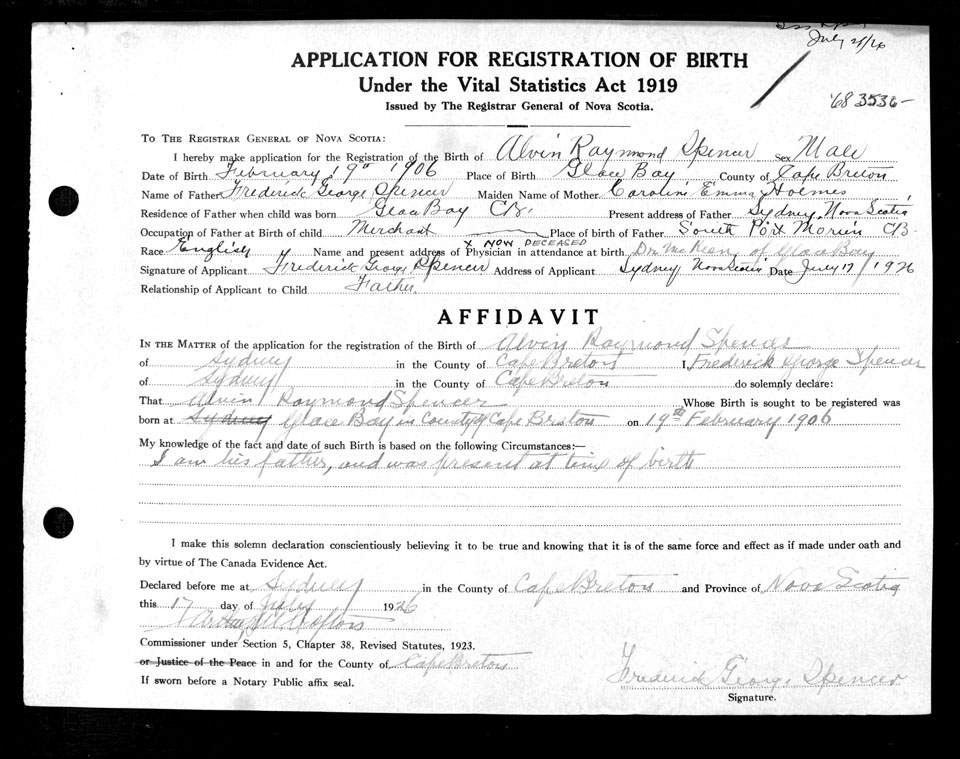 July 21/26
APPLICATION FOR REGISTRATION OF BIRTH
Under the Vital Statistics Act 1919
Issued by The Registrar General of Nova Scotia.
'68 3536-
TO THE REGISTRAR GENERAL OF NOVA SCOTIA:
I hereby make application for the Registration of the Birth of Alvin Raymond Spencer Sex Male
Date of Birth February 19th 1906 Place of Birth Glace Bay County of Cape Breton
Name of Father Frederick George Spencer Maiden Name of Mother Caroline Emma Holmes
Residence of Father when child was born Glace Bay CB. Present address of Father Sydney Nova Scotia
Occupation of Father at Birth of child Merchant Place of birth of Father South Port Morien CB-
X NOW DECEASED
Race English Name and present address of Physician in attendance at birth Dr McKeen of Glace Bay
Signature of Applicant Frederick George Spencer Address of Applicant Sydney Nova Scotia Date July 17 / 1926
Relationship of Applicant to Child Father
AFFIDAVIT
IN THE MATTER of the application for the registration of the Birth of Alvin Raymond Spencer
of Sydney in the County of Cape Breton I Frederick George Spencer
of Sydney in the County of Cape Breton do solemnly declare:
That Alvin Raymond Spencer Whose Birth is sought to be registered was
born at Sydney Glace Bay in County of Cape Breton on 19th February 1906
My knowledge of the fact and date of such Birth is based on the following Circumstances:—
I am his father, and was present at time of birth
I make this solemn declaration conscientiously believing it to be true and knowing that it is of the same force and effect as if made under oath and
by virtue of The Canada Evidence Act.
Declared before me at Sydney in the County of Cape Breton and Province of Nova Scotia
this 17 day of July 1926
Commissioner under Section 5, Chapter 38, Revised Statutes, 1923.
or Justice of the Peace in and for the County of Cape Breton
If sworn before a Notary Public affix seal.
Frederick George Spencer
Signature.